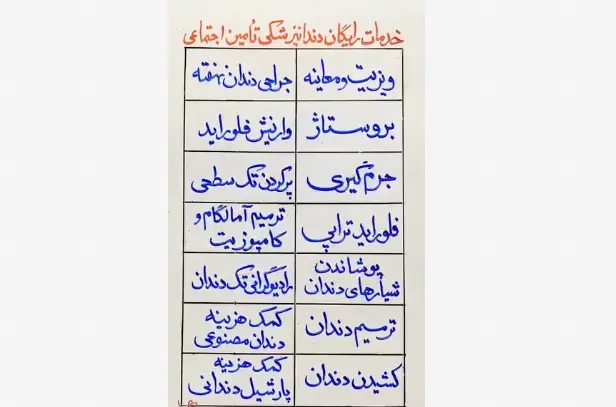 خدمات رایگان دندانپزشکی تأمین اجتماعی
ویزیت و معاینه
جراحی دندان نهفته
بروساژ
وارنیش فلوراید
جرم‌گیری
پرکردن تک سطحی
فلوراید تراپی
ترمیم آمالگام و
کامپوزیت
پوشاندن
شیارهای دندان
رادیوگرافی تک دندان
ترمیم دندان
کمک هزینه
دندان مصنوعی
کشیدن دندان
کمک هزینه
پارشیل دندانی